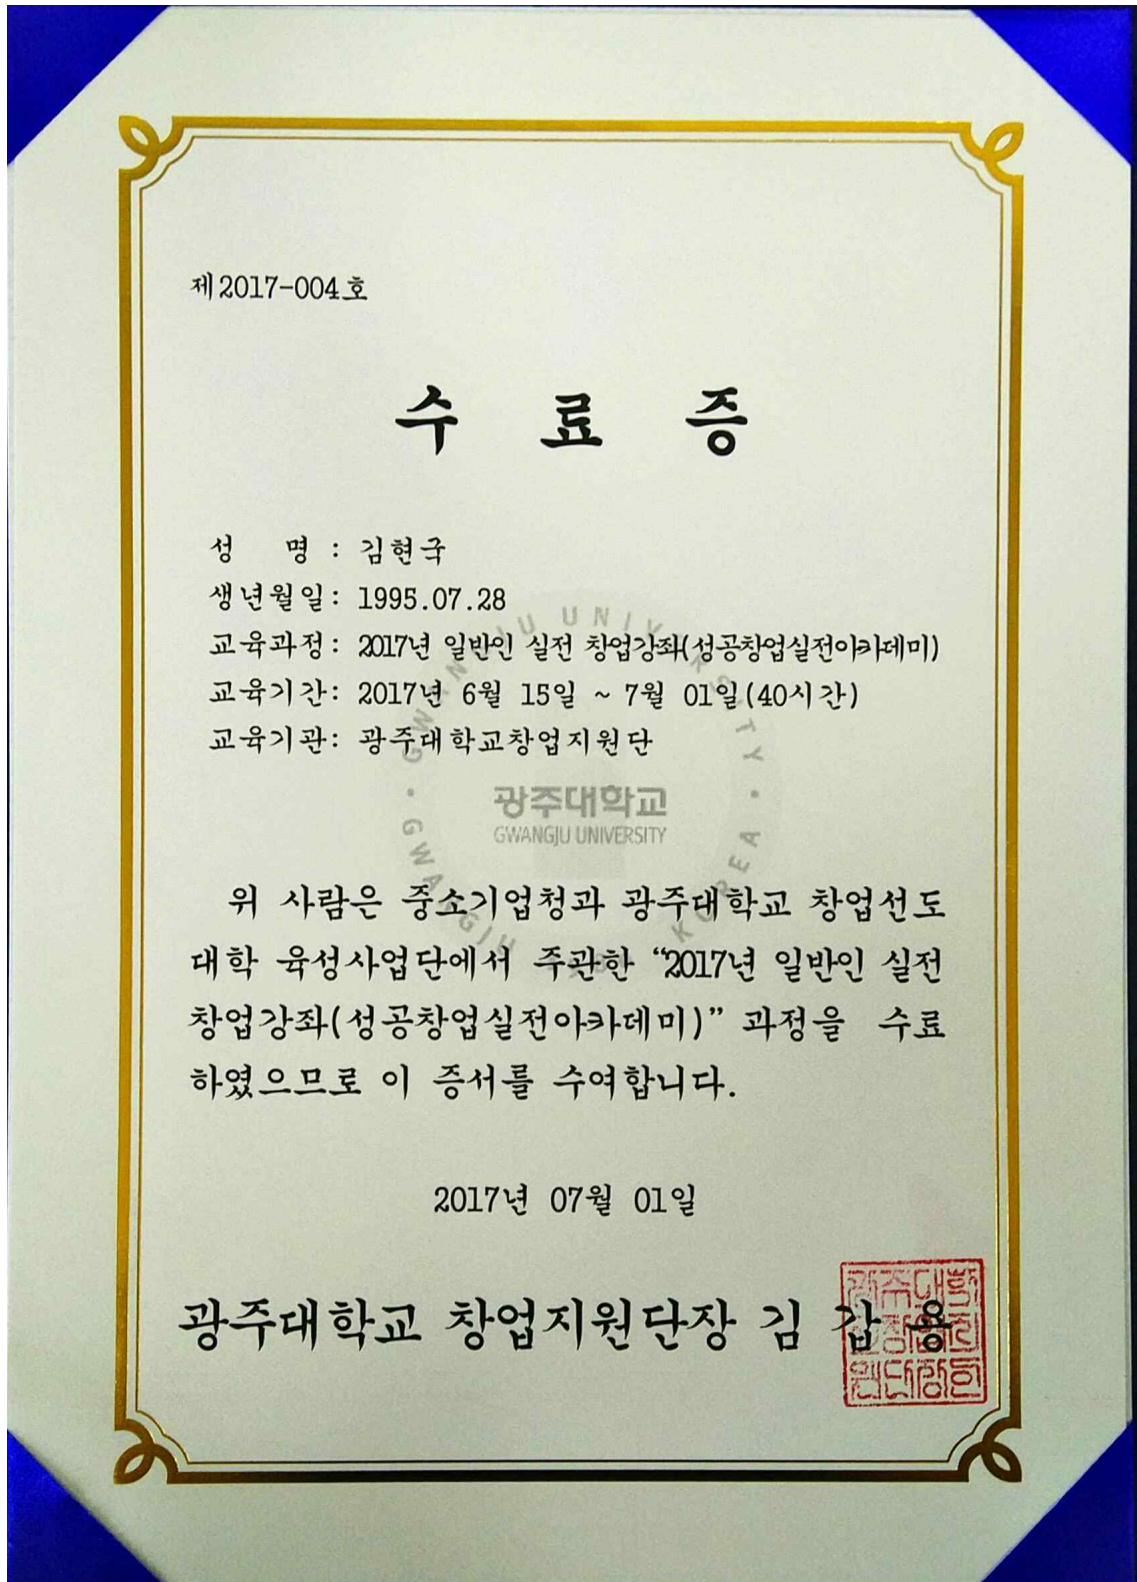 제2017-004호
수 료 증
성 명 : 김현국
생년월일: 1995.07.28
교육과정: 2017년 일반인 실전 창업강좌(성공창업실전아카데미)
교육기간: 2017년 6월 15일 ~ 7월 01일(40시간)
교육기관: 광주대학교창업지원단
GWANGJU UNIVERSITY
광주대학교
GWANGJU UNIVERSITY
GWANGJU KOREA
위 사람은 중소기업청과 광주대학교 창업선도
대학 육성사업단에서 주관한 “2017년 일반인 실전
창업강좌(성공창업실전아카데미)” 과정을 수료
하였으므로 이 증서를 수여합니다.
2017년 07월 01일
광주대학교 창업지원단장 김 갑 용